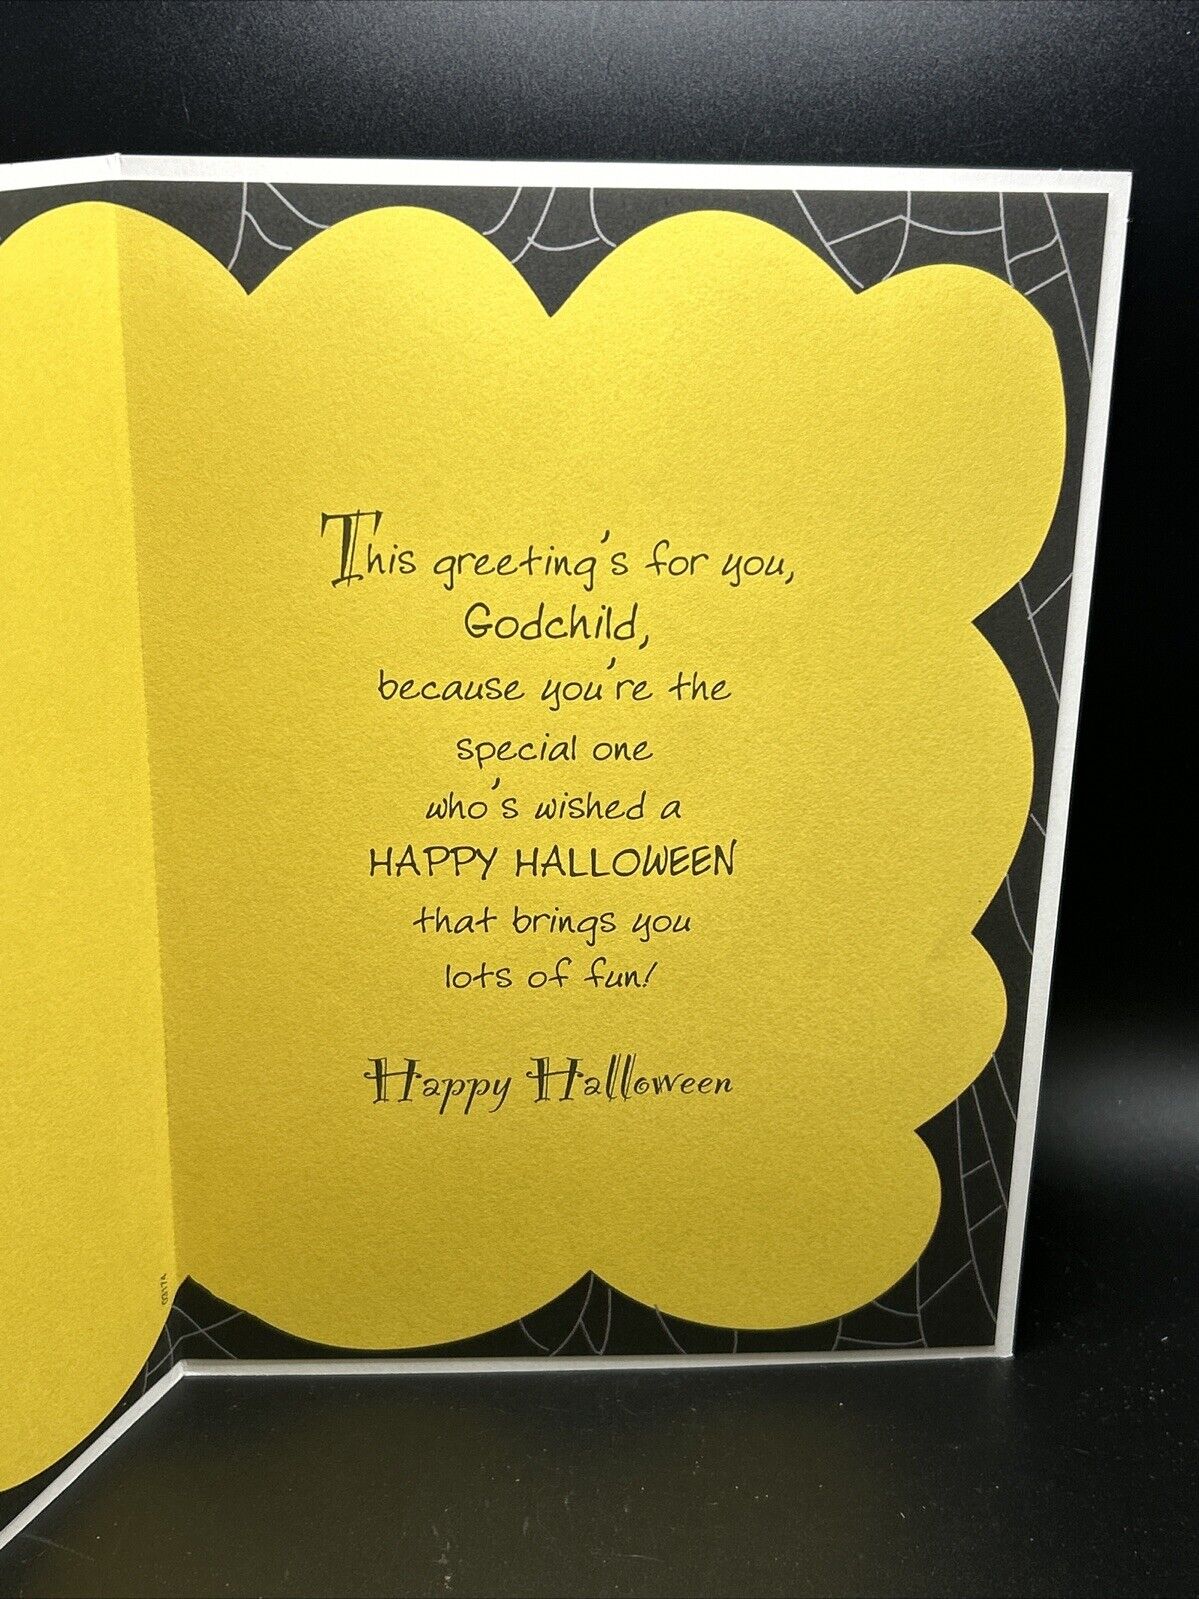 This greeting's for you,
Godchild,
because you're the
special one
who's wished a
HAPPY HALLOWEEN
that brings you
lots of fun!
Happy Halloween
03174